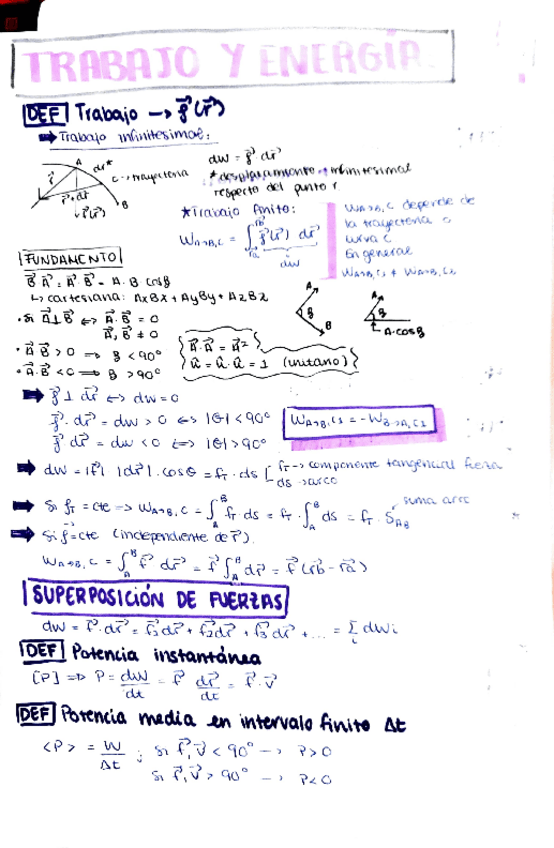 TRABAJO Y ENERGÍA
DEF Trabajo → f⃗(r⃗)
➡ Trabajo infinitesimal:
A dr⃗* C→trayectoria
r⃗
r⃗+dr⃗
f⃗(r⃗) B
dw = f⃗ · dr⃗
*desplazamiento infinitesimal
respecto del punto r
★Trabajo finito:
W A→B,C = ∫ f⃗(r⃗) dr⃗
dw
W A→B,C depende de
la trayectoria o
curva C
En general
W A→B,C1 ≠ W A→B,C2
FUNDAMENTO
B⃗ A⃗ = A⃗ · B⃗ = A · B · cosθ
↳ cartesiana: AxBx + AyBy + AzBz
• Si A⃗ ⊥ B⃗ ⇔ A⃗ · B⃗ = 0
A⃗, B⃗ ≠ 0
• A⃗ B⃗ > 0 ⇒ θ < 90°
• A⃗ · B⃗ < 0 ⇒ θ > 90°
A⃗ · A⃗ = A²
û = û · û = 1 (unitario)
A θ B
A θ A·cosθ
➡ f⃗ ⊥ dr⃗ ⇔ dw = 0
f⃗ · dr⃗ = dw > 0 ⇔ |θ| < 90°
f⃗ dr⃗ = dw < 0 ⇔ |θ| > 90°
W A→B,C1 = -W B→A,C1
➡ dw = |f⃗| |dr⃗| · cosθ = fT · ds [ fT → componente tangencial fuerza
ds → arco
➡ Si fT = cte → W A→B,C = ∫ fT ds = fT · ∫ ds = fT · S AB
suma arco
➡ Si f⃗ = cte (independiente de r⃗).
W A→B,C = ∫ f⃗ dr⃗ = f⃗ ∫ dr⃗ = f⃗ (r⃗b - r⃗a)
SUPERPOSICIÓN DE FUERZAS
dw = f⃗ · dr⃗ = f⃗1 dr⃗ + f⃗2 dr⃗ + f⃗3 dr⃗ + ... = Σ dwi
DEF Potencia instantánea
[P] ⇒ P = dw/dt = f⃗ dr⃗/dt = f⃗ · v⃗
DEF Potencia media en intervalo finito Δt
<P> = W/Δt ; si f⃗,v⃗ < 90° → P>0
si f⃗,v⃗ > 90° → P<0